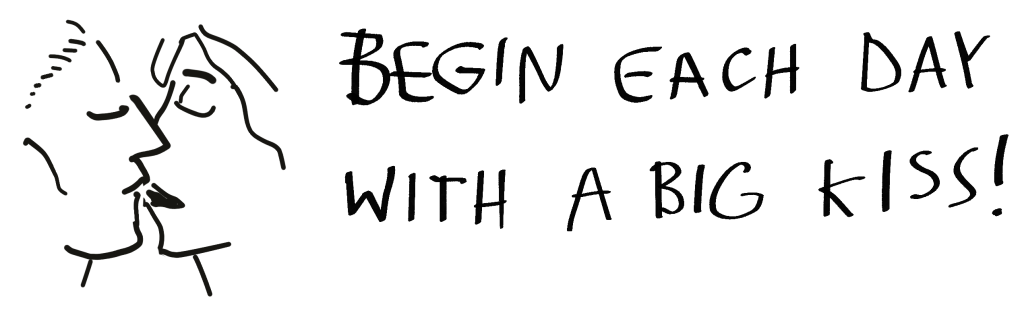 BEGIN EACH DAY
WITH A BIG KISS!